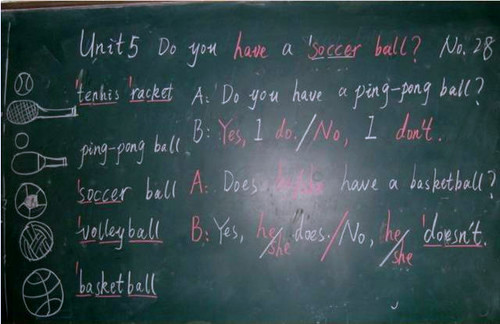 Unit 5 Do you have a 'soccer ball? No. 28
'tennis 'racket A: Do you have a ping-pong ball?
B: Yes, I do. / No, I don't.
ping-pong ball
'soccer ball A: Does have a basketball?
'volleyball B: Yes, he/she does. / No, he/she 'doesn't.
'basketball